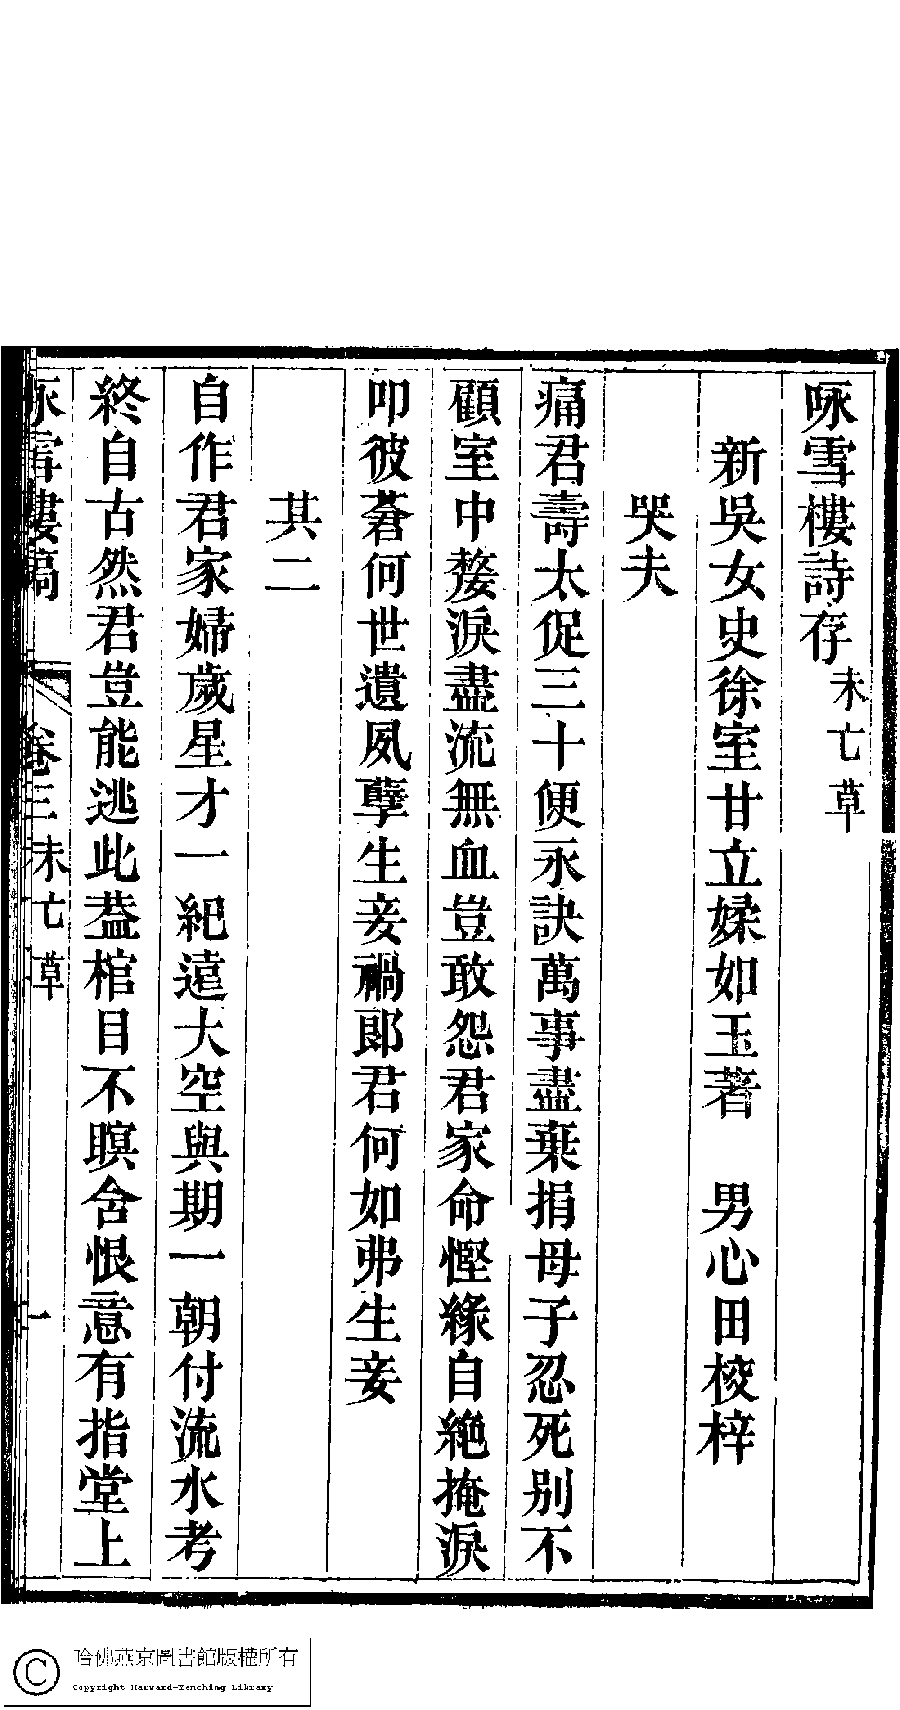 咏雪樓詩存 未亡草
新吳女史徐室甘立媃如玉著　男心田校梓
哭夫
痛君壽太促三十便永訣萬事盡棄捐母子忍死别不
顧室中嫠淚盡流無血豈敢怨君家命慳緣自絶掩淚
叩彼蒼何世遺夙孽生妾禍郎君何如弗生妾
其二
自作君家婦歲星才一紀遠大空與期一朝付流水考
終自古然君豈能逃此葢棺目不瞑含恨意有指堂上
咏雪樓稿　卷三 未亡草　一
哈佛燕京圖書館版權所有
Copyright Harvard-Yenching Library